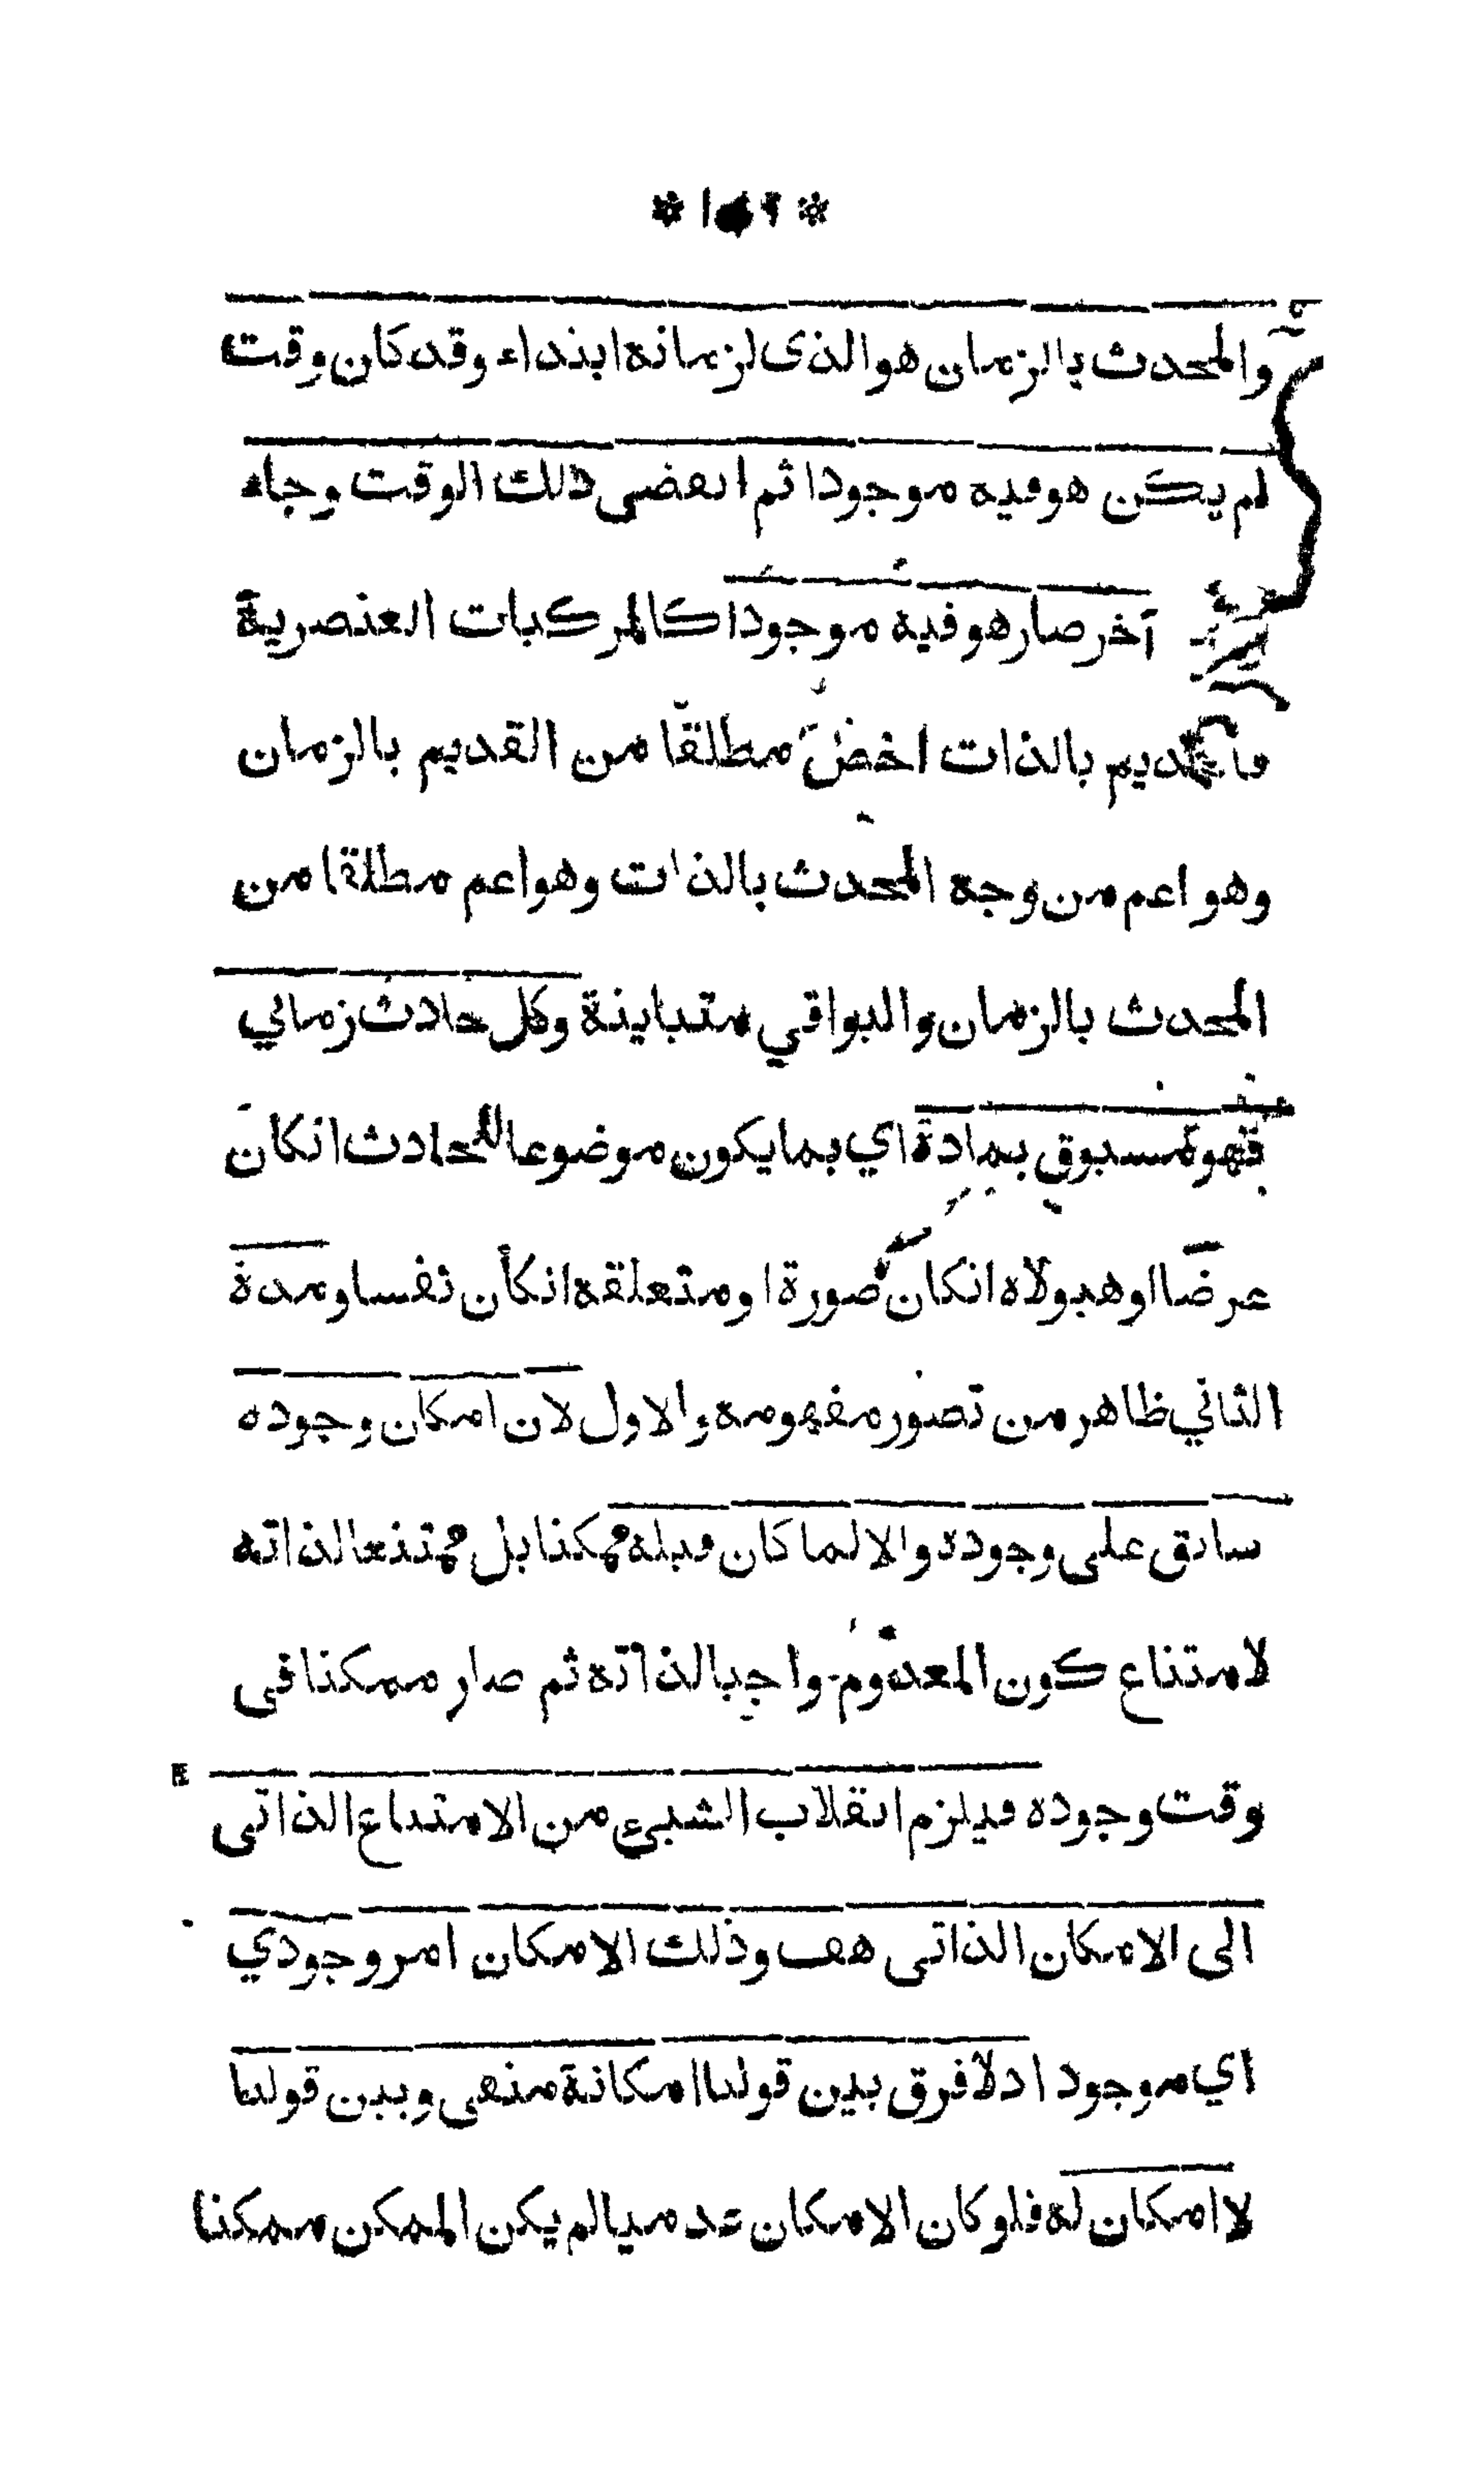 والمحدث بالزمان هو الذى لزمانه ابتداء وقد كان وقت
لم يكن هو فيه موجودا ثم انقضى ذلك الوقت وجاء
آخر صار هو فيه موجودا كالمركبات العنصرية
فالقديم بالذات اخصّ مطلقًا من القديم بالزمان
وهو اعم من وجه المحدث بالذات وهو اعم مطلقا من
المحدث بالزمان والبواقي متباينة وكل حادث زماني
فهو مسبوق بمادة اي بما يكون موضوعا للحادث انكان
عرضًا او هيولاه انكان صورة او متعلقه انكان نفسا ومدة
الثاني ظاهر من تصور مفهومه والاول لان امكان وجوده
سابق على وجوده والا لما كان قبله ممكنا بل ممتنعا لذاته
لامتناع كون المعدوم واجبا لذاته ثم صار ممكنا فى
وقت وجوده فيلزم انقلاب الشيئ من الامتناع الذاتى
الى الامكان الذاتى هف وذلك الامكان امر وجودي
اي موجود اذ لا فرق بين قولنا امكانه منفى وبين قولنا
لا امكان له فلو كان الامكان عدميا لم يكن الممكن ممكنا